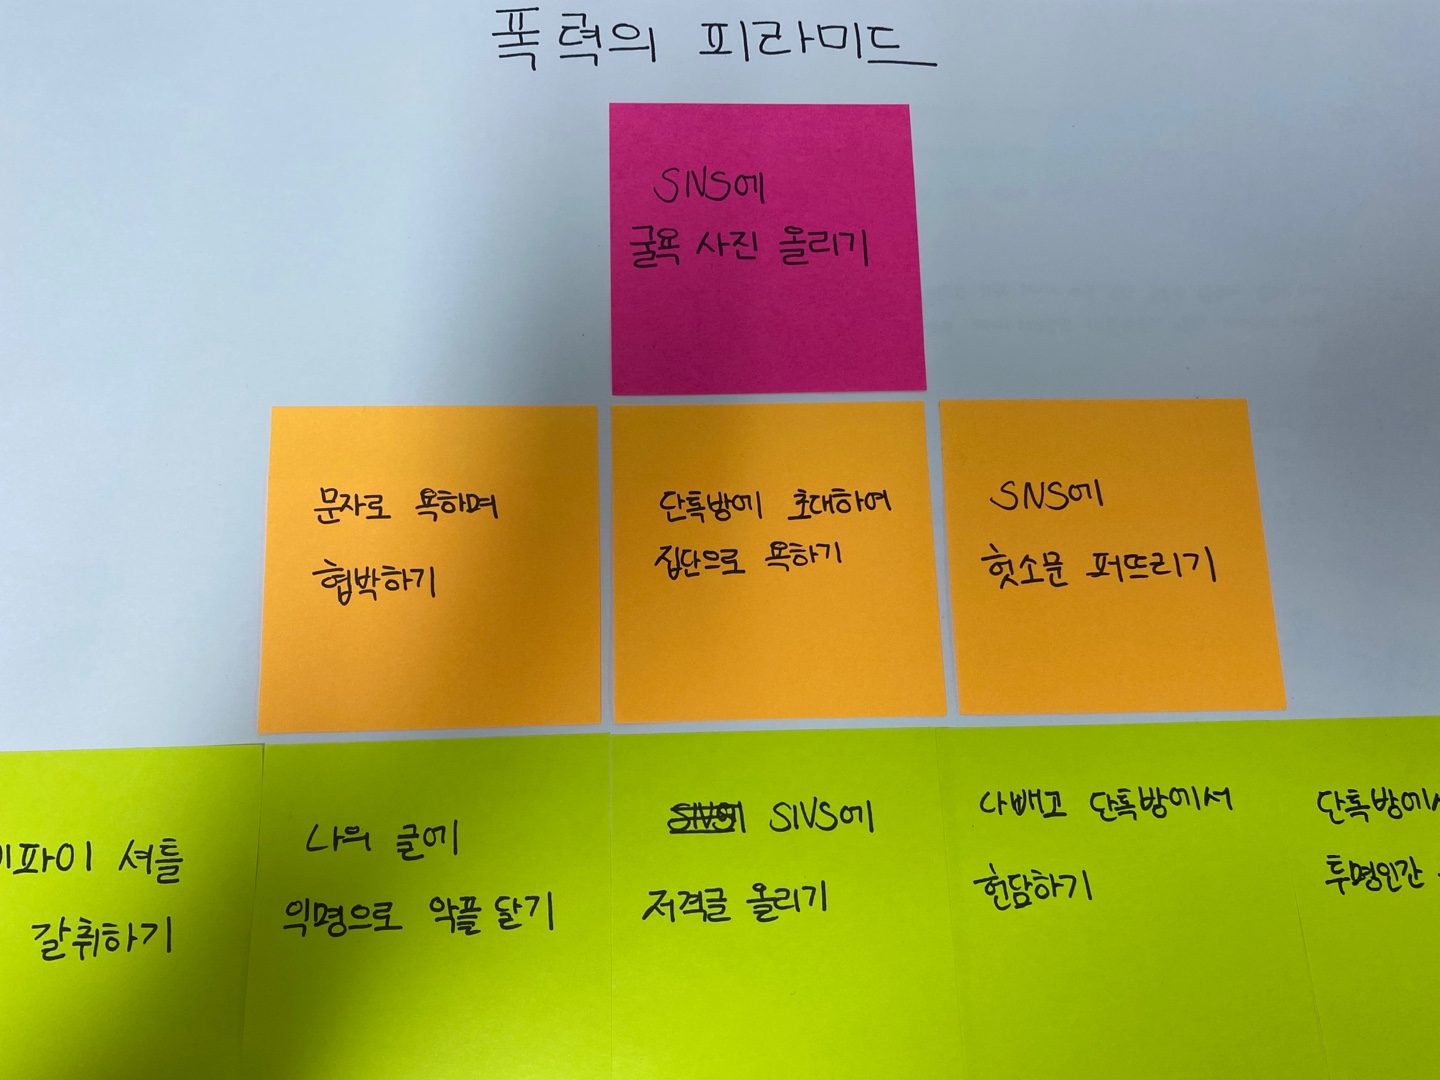 폭력의 피라미드
SNS에
굴욕 사진 올리기
문자로 욕하며
협박하기
단톡방에 초대하여
집단으로 욕하기
SNS에
헛소문 퍼뜨리기
이파이 셔틀
갈취하기
나의 글에
익명으로 악플 달기
SNS에
저격글 올리기
나빼고 단톡방에서
헌담하기
단톡방에서
투명인간